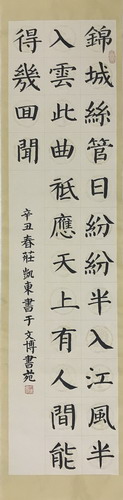 錦城絲管日紛紛半入江風半
入雲此曲祗應天上有人間能
得幾回聞
辛丑春莊凱東書于文博書苑